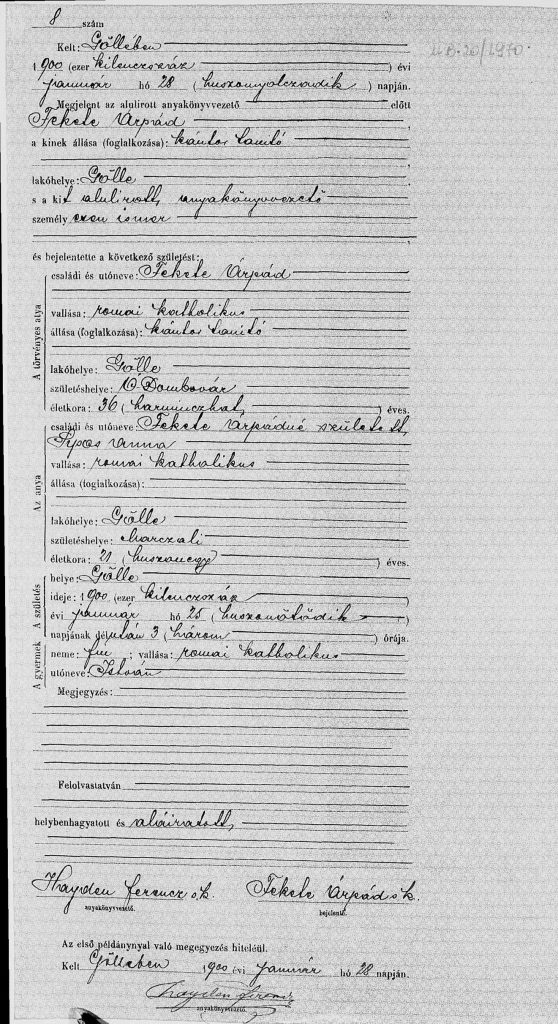 8 szám
II. B. 20/1970.
Kelt: Göllében
1900 (ezer kilenczszáz) évi
január hó 28 (huszonyolczadik) napján.
Megjelent az alulirott anyakönyvvezető előtt
Fekete Árpád,
a kinek állása (foglalkozása): kántor tanitó
lakóhelye: Gölle
s a kit alulirott anyakönyvvezető
személyesen ismer
és bejelentette a következő születést:
A törvényes atya
családi és utóneve: Fekete Árpád
vallása: romai katholikus
állása (foglalkozása): kántor tanitó
lakóhelye: Gölle
születéshelye: Ó Dombovár
életkora: 36 (harminczhat) éves.
Az anya
családi és utóneve: Fekete Árpádné született
Sipos Anna
vallása: romai katholikus
állása (foglalkozása):
lakóhelye: Gölle
születéshelye: Marczali
életkora: 21 (huszonegy) éves.
A gyermek A születés
helye: Gölle
ideje: 1900 (ezer kilenczszáz)
évi január hó 25 (huszonötödik)
napjának délután 3 (három) órája.
neme: fiu; vallása: romai katholikus
utóneve: István
Megjegyzés:
Felolvastatván
helybenhagyatott és aláiratott,
Hayden Ferencz s.k. Fekete Árpád s.k.
anyakönyvvezető. bejelentő.
Az első példánynyal való megegyezés hiteléül.
Kelt Göllében 1900 évi január hó 28 napján.
Hayden Ferencz
anyakönyvvezető.